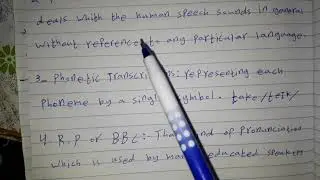 deals whith the human speech sounds in general
without reference to any particular language.
3- Phonetic Transcriptions: representing each
Phoneme by a single symbol. take /teik/
4 R.P or BBC:- The kind of Pronunciation
which is used by educated speakers